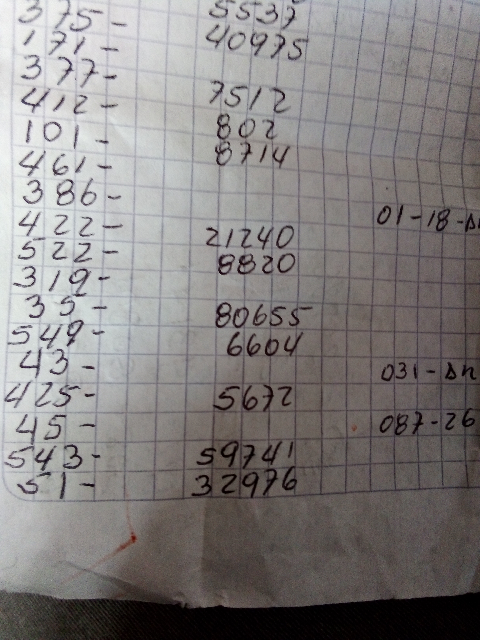 375- 5537
171- 40975
377-
412- 7512
101- 802
461- 8714
386-
422- 21240 01-18-
522- 8820
319-
35- 80655
549- 6604
43- 031-Δn
425- 5672
45- 087-26
543- 59741
51- 32976